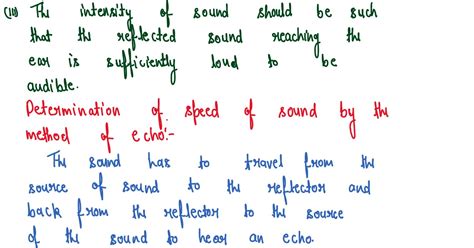 (iii) The intensity of sound should be such
that the reflected sound reaching the
ear is sufficiently loud to be
audible.
Determination of speed of sound by the
method of echo:-
The sound has to travel from the
source of sound to the reflector and
back from the reflector to the source
of the sound to hear an echo.